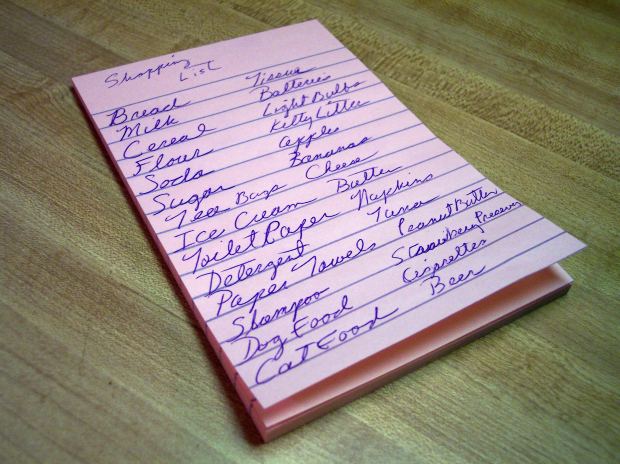 Shopping
List
Bread Tissue
Milk Batteries
Cereal Light Bulbs
Flour Kitty Litter
Soda apples
Sugar Bananas
Tea Bags Cheese
Ice Cream Butter
Toilet Paper Napkins
Detergent Tuna
Paper Towels Peanut Butter
Shampoo Strawberry Preserves
Dog Food Cigarettes
Cat Food Beer